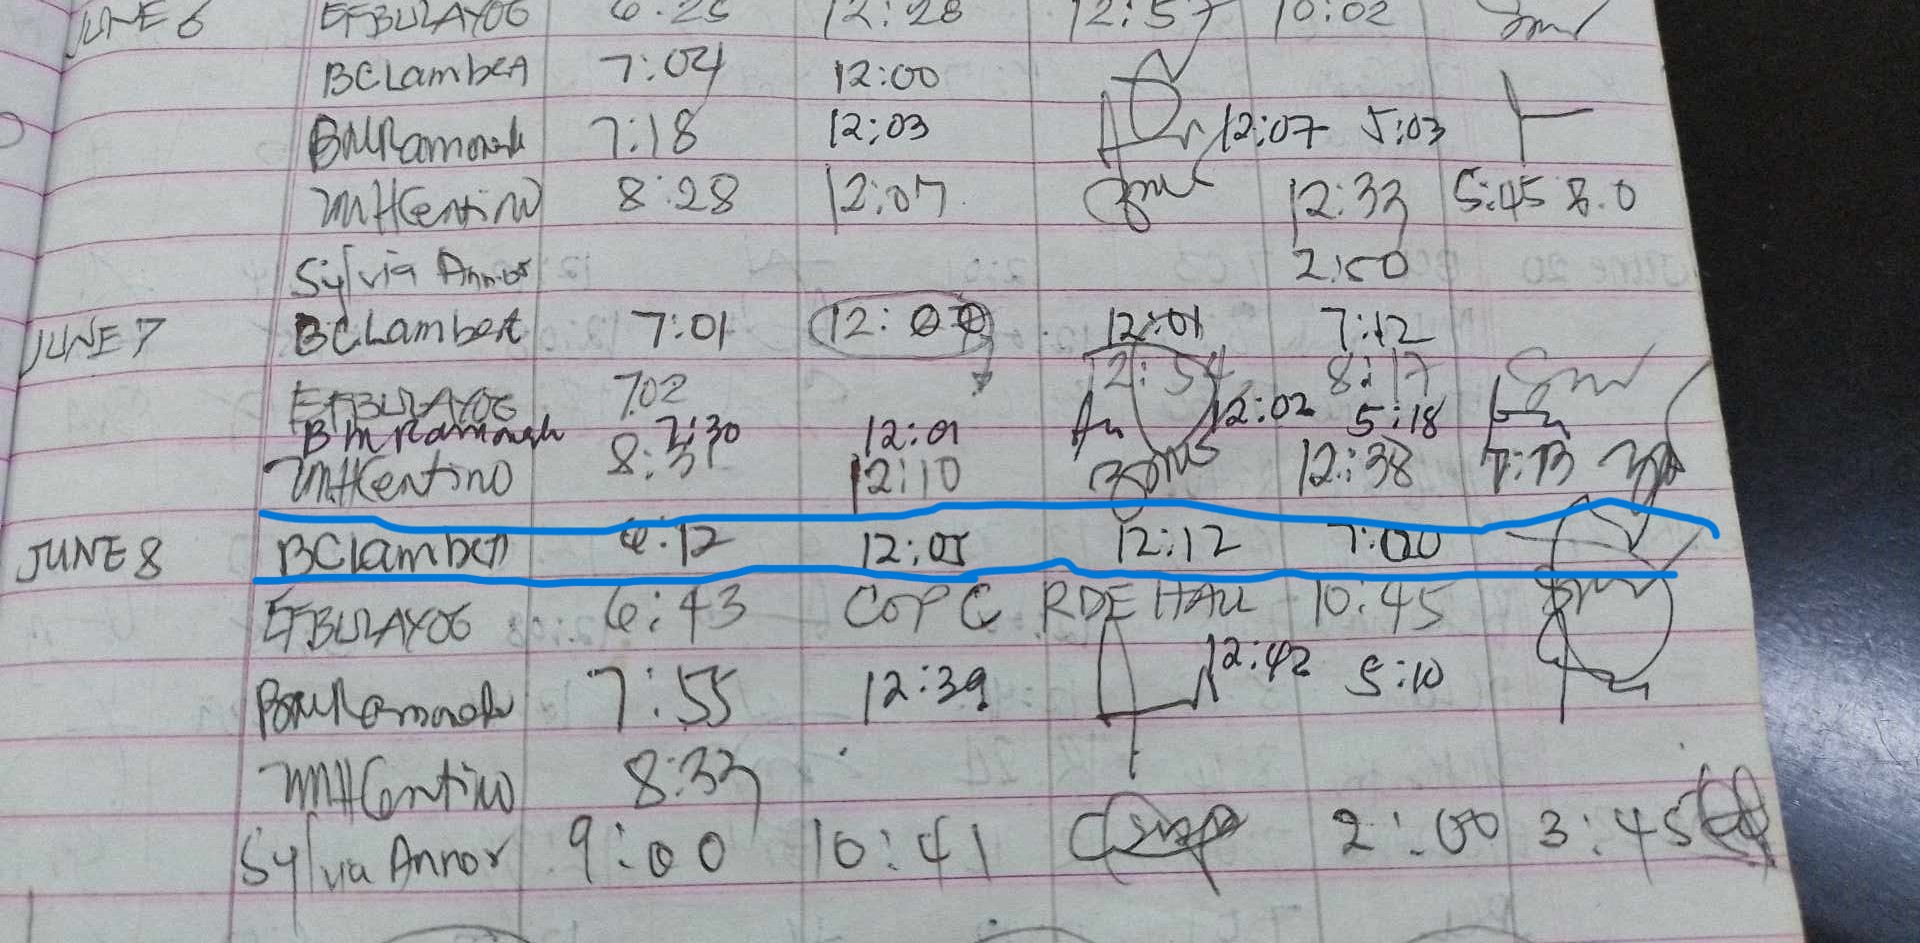 JUNE 6 EFBULAYOG 6:25 12:28 12:57 10:02
BCLambert 7:04 12:00
BMRamonah 7:18 12:03 12:07 5:03
MHCentino 8:28 12:07 12:33 5:45 8.0
Sylvia Annor 2:50
JUNE 7 BCLambert 7:01 12:00 12:01 7:12
EFBULAYOG 7:02 12:54 8:17
BMRamonah 7:30 12:01 12:02 5:18
MHCentino 8:31 12:10 12:38 7:13
JUNE 8 BCLambert 6:12 12:05 12:12 7:00
EFBULAYOG 6:43 COPC RDE HALL 10:45
BMRamonah 7:55 12:39 12:42 5:10
MHCentino 8:33
Sylvia Annor 9:00 10:41 2:00 3:45